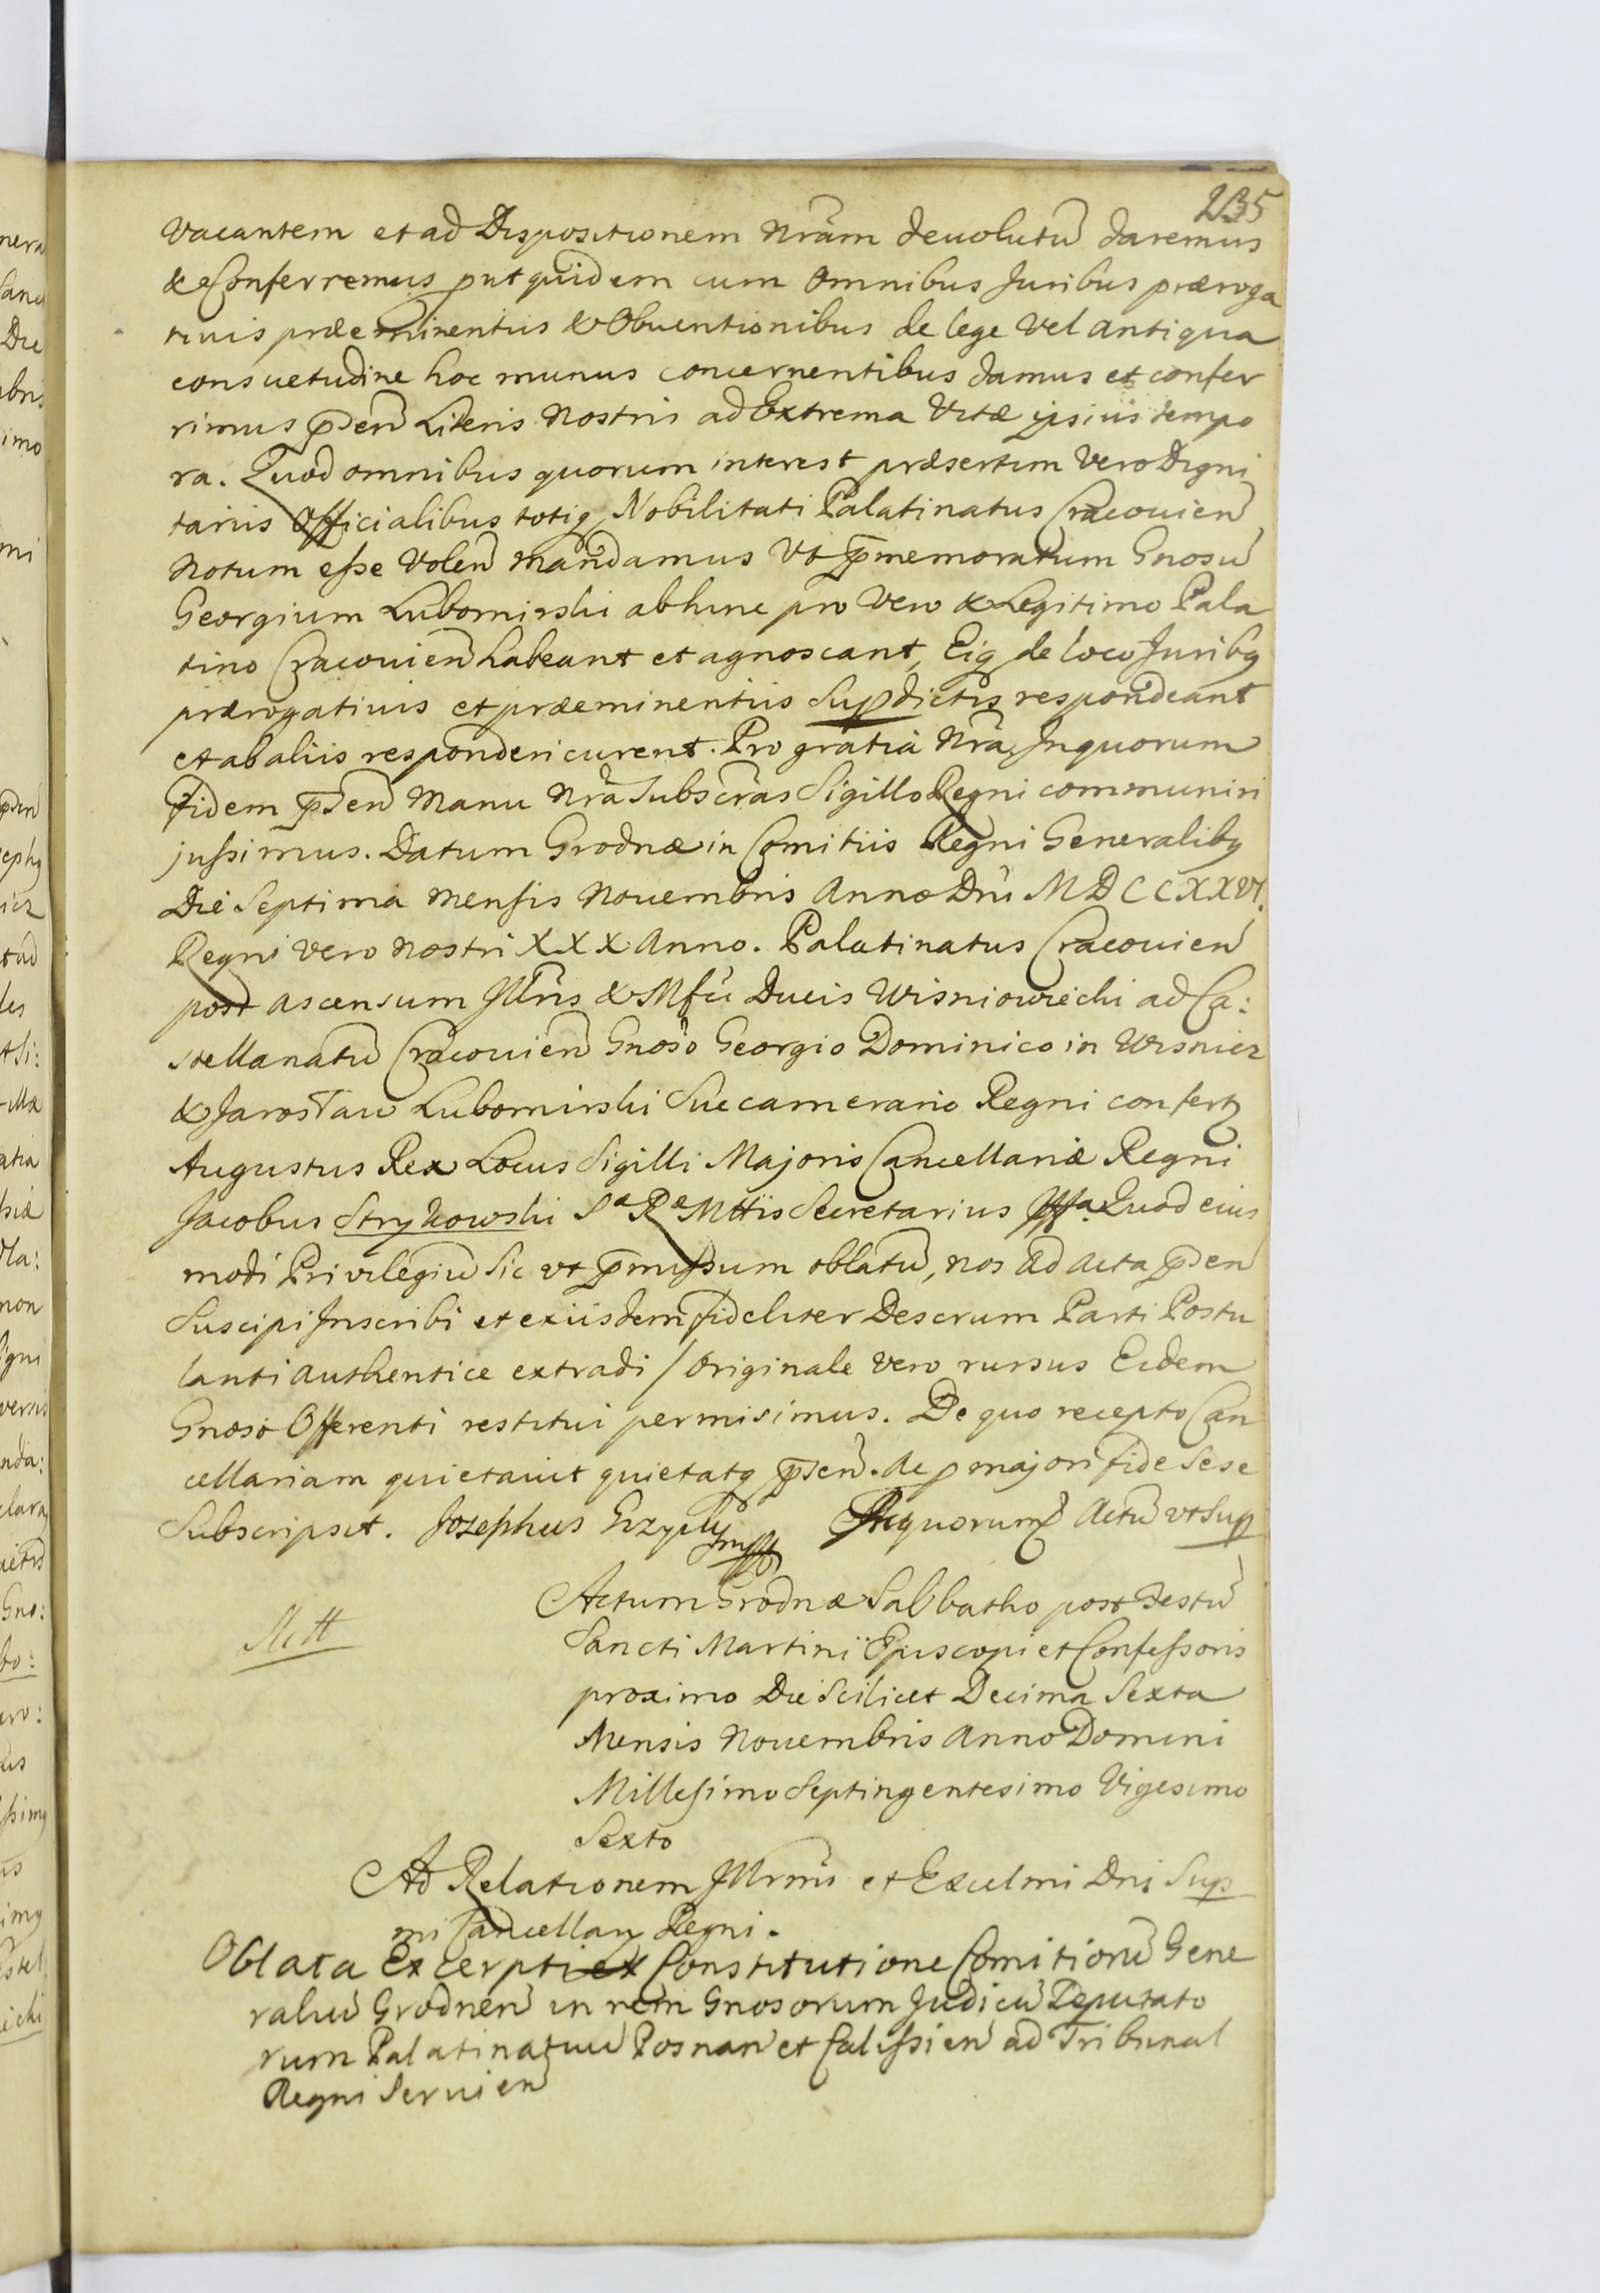 235
Vacantem et ad Dispositionem Nrãm devolutũ daremus
& Conferremus put quidem cum Omnibus Juribus præroga
tivis præeminentiis & Obventionibus de lege Vel antiqua
consuetudine hoc munus concernentibus damus et confer
rimus p̃sen̄ Literis Nostris ad Extrema Vitæ ipsius tempo
ra. Quod omnibus quorum interest præsertim Vero Digni
tariis Officialibus totiq Nobilitati Palatinatus Cracouien̄
Notum esse Volen̄ mandamus Vt p̃memoratum Gnosũ
Georgium Lubomirski abhinc pro Vero & Legitimo Pala
tino Cracouien̄ habeant et agnoscant, Eiq de loco Juribq
prærogativis et præeminentiis Supdictis respondeant
et ab aliis responderi curent. Pro gratia Nrã, In quorum
fidem p̃sen̄ Manu Nrã Subscrãs Sigillo Regni communiri
jussimus. Datum Grodnæ in Comitiis Regni Generalibq
Die Septima Mensis Nouembris Anno Dnĩ MDCCXXVI.
Regni Vero Nostri XXX Anno. Palatinatus Cracouien̄
post ascensum Illrĩs & Mfci Ducis Wisniowiecki ad Ca:
stellanatũ Cracouien̄ Gnosò Georgio Dominico in Wisnicz
& Jarosław Lubomirski Succamerario Regni confertq
Augustus Rex Locus Sigilli Majoris Cancellariæ Regni
Jacobus Strykowski Sæ Ræ Mttis Secretarius Quod eius
modi Privilegiũ Sic vt p̃missum oblatũ, nos ad Acta p̃sen̄
Suscipi Inscribi et ex iisdem fideliter Descrum Parti Postu
lanti authentice extradi / Originale vero rursus Eidem
Gnoso Offerenti restitui permisimus. De quo recepto Can
cellariam quietavit quietatq p̃sen̄. Ac p majori fide Sese
Subscripsit. Josephus Grzyply mpp In quorum Actũ vt Sup
Actum Grodnæ Sabbatho post Festũ
Sancti Martini Episcopi et Confessoris
proximo Die Scilicet Decima Sexta
Mensis Nouembris Anno Domini
Millesimo Septingentesimo Vigesimo
Sexto
Ad Relationem Illrmi et Excelmi Dni Sup
mi Cancellarij Regni.
Oblata Excerpti ex Constitutione Comitiorũ Gene
raliũ Grodnen̄ in rem Gnosorum Judicũ Deputato
rum Palatinatuũ Posnan̄ et Calissien̄ ad Tribunal
Regni Servien̄